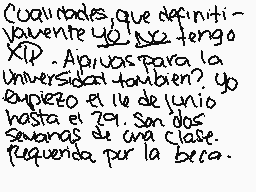 Cualidades, que definiti-
vamente yo no tengo
XD. Ahi vas para la
universidad tambien? yo
empiezo el 16 de junio
hasta el 29. Son dos
semanas de una clase.
Requerida por la beca.